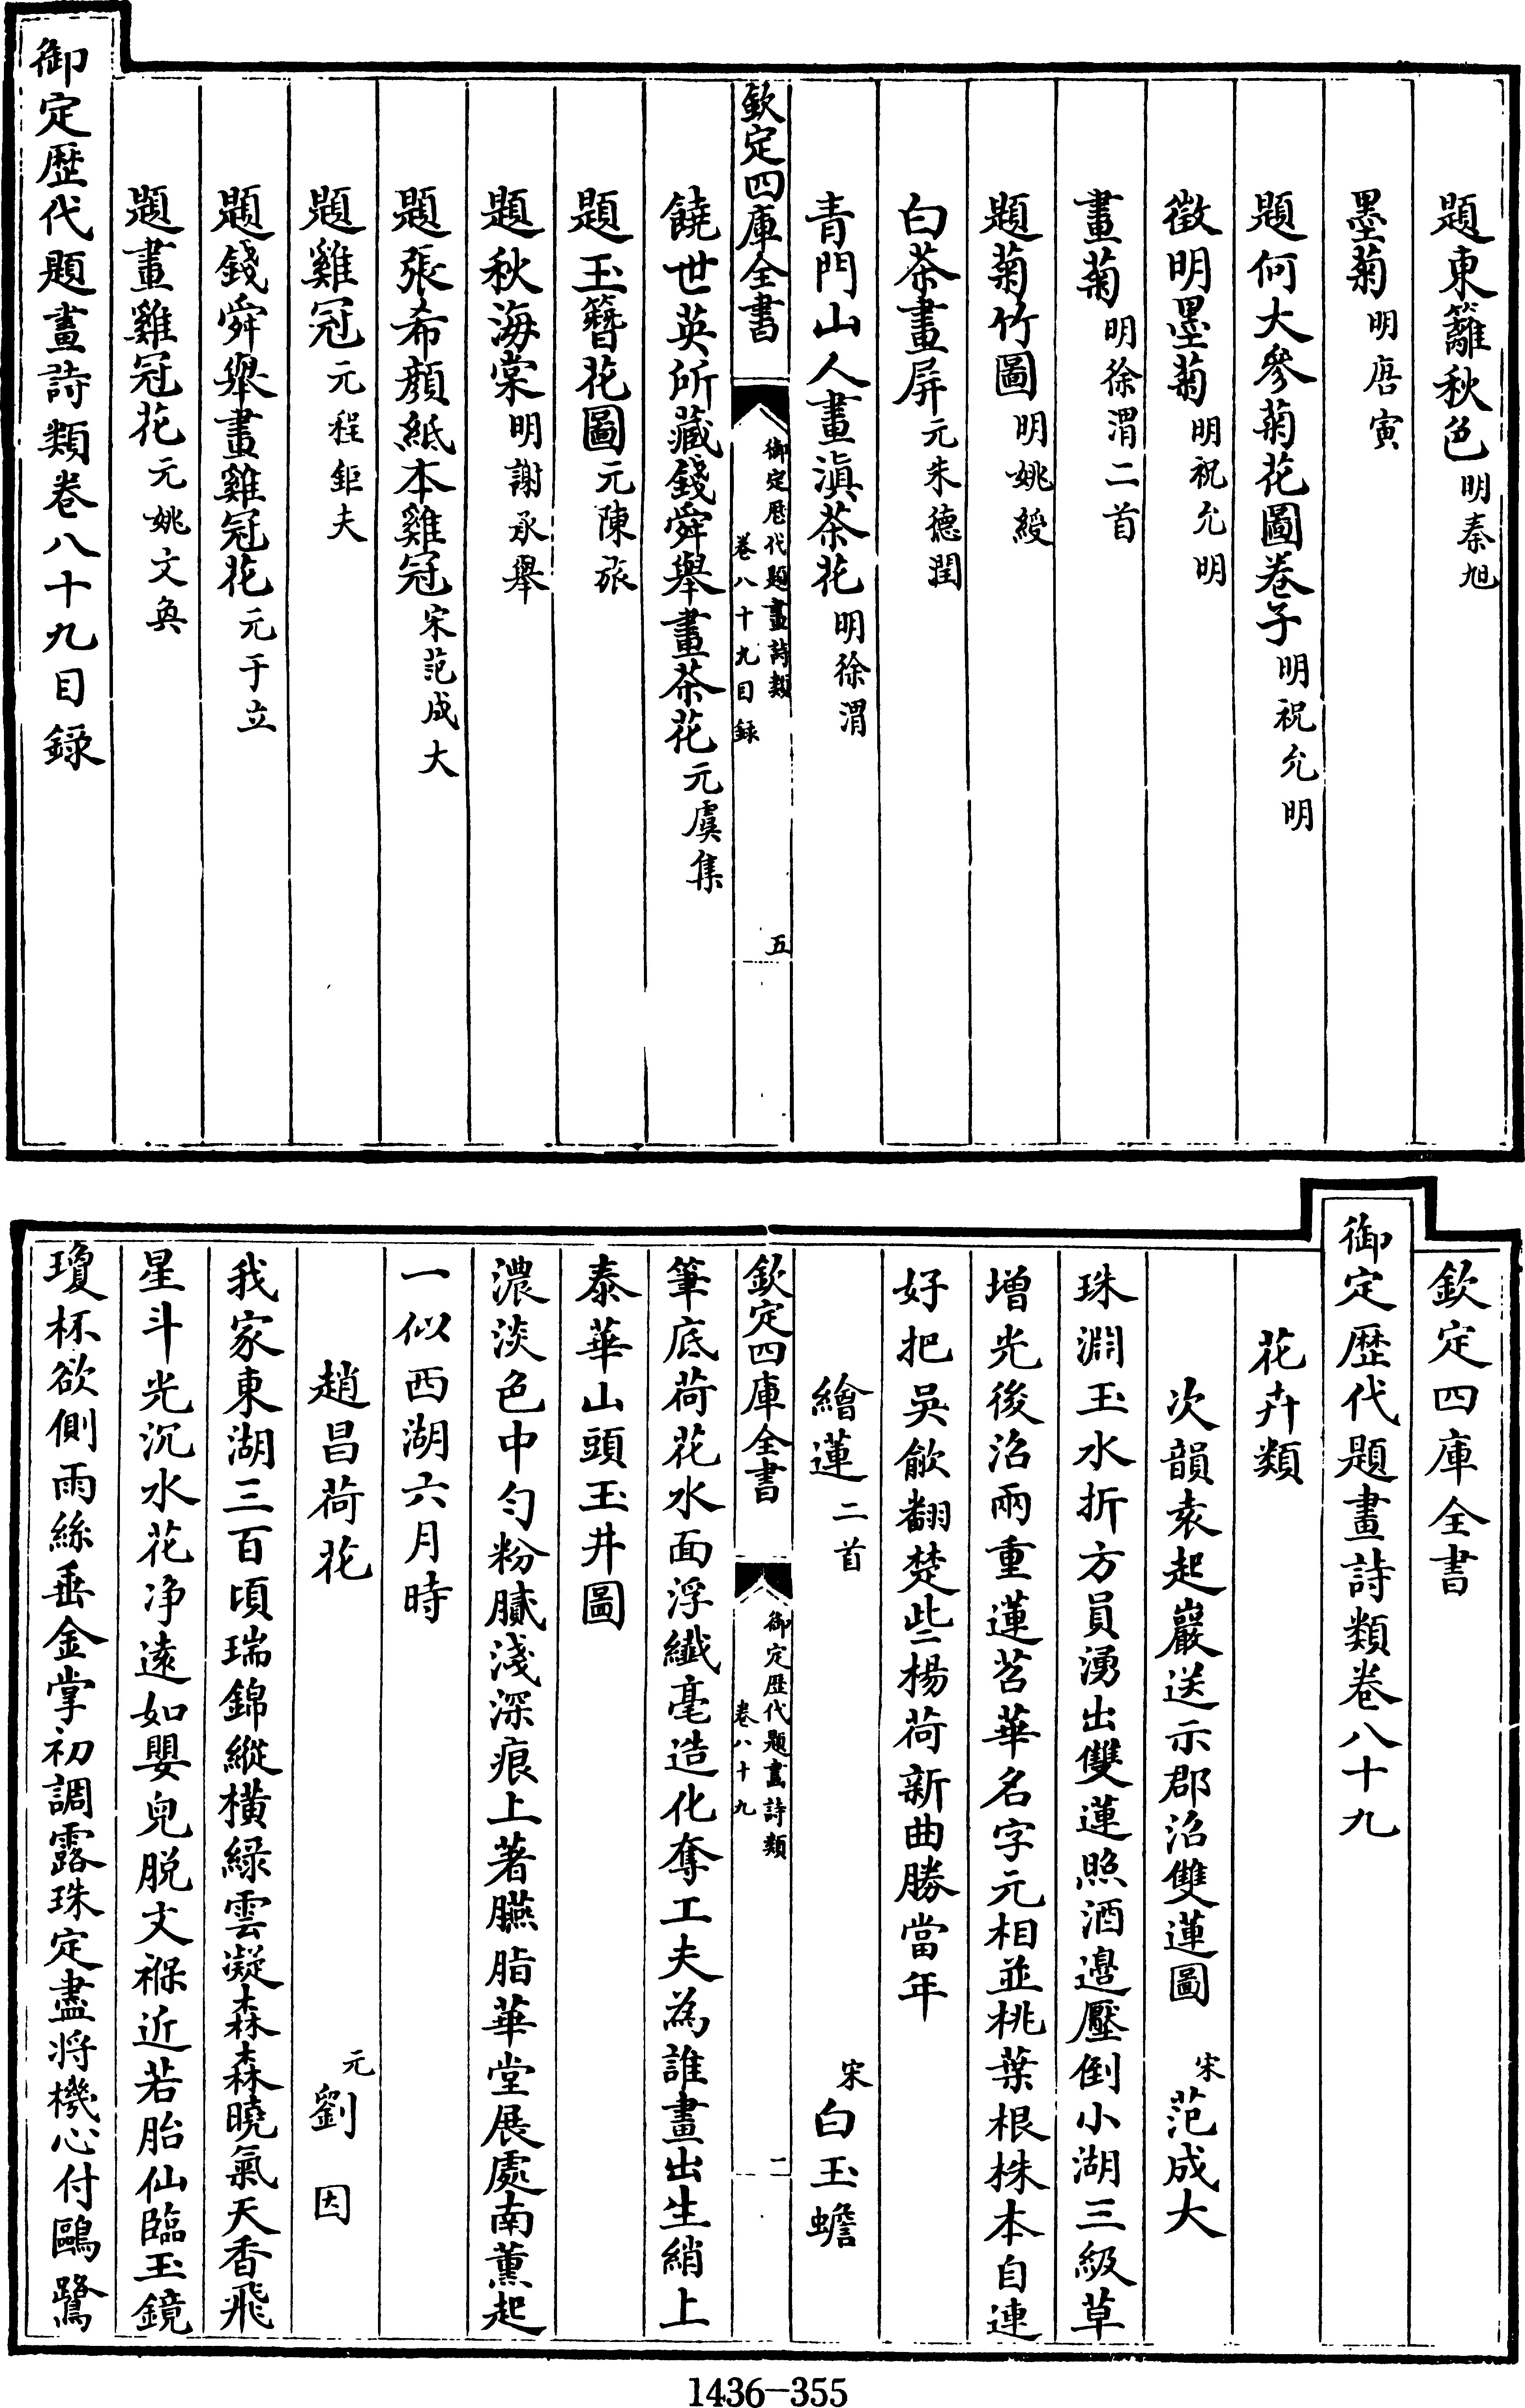 題東籬秋色明秦旭
墨菊明唐寅
題何大參菊花圖卷子明祝允明
徵明墨菊明祝允明
畫菊明徐渭二首
題菊竹圖明姚綬
白茶畫屏元朱德潤
青門山人畫滇茶花明徐渭
欽定四庫全書
御定歷代題畫詩類
卷八十九目録
五
饒世英所藏錢舜舉畫茶花元虞集
題玉簪花圖元陳旅
題秋海棠明謝承舉
題張希顔紙本雞冠宋范成大
題雞冠元程鉅夫
題錢舜舉畫雞冠花元于立
題畫雞冠花元姚文奐
御定歷代題畫詩類卷八十九目録
欽定四庫全書
御定歷代題畫詩類卷八十九
花卉類
次韻袁起巖送示郡沼雙蓮圖 宋范成大
珠淵玉水折方員湧出雙蓮照酒邉壓倒小湖三級草
增光後沼兩重蓮苕華名字元相並桃葉根株本自連
好把吳歈翻楚些楊荷新曲勝當年
繪蓮二首 宋白玉蟾
欽定四庫全書
御定歷代題畫詩類
卷八十九
二
筆底荷花水面浮纎毫造化奪工夫為誰畫出生綃上
泰華山頭玉井圖
濃淡色中勻粉膩淺深痕上著臙脂華堂展處南薰起
一似西湖六月時
趙昌荷花 元劉因
我家東湖三百頃瑞錦縱橫緑雲凝森森曉氣天香飛
星斗光沉水花净逺如嬰兒脱文褓近若胎仙臨玉鏡
瓊杯欲側雨絲垂金掌初調露珠定盡將機心付鷗鷺
1436-355